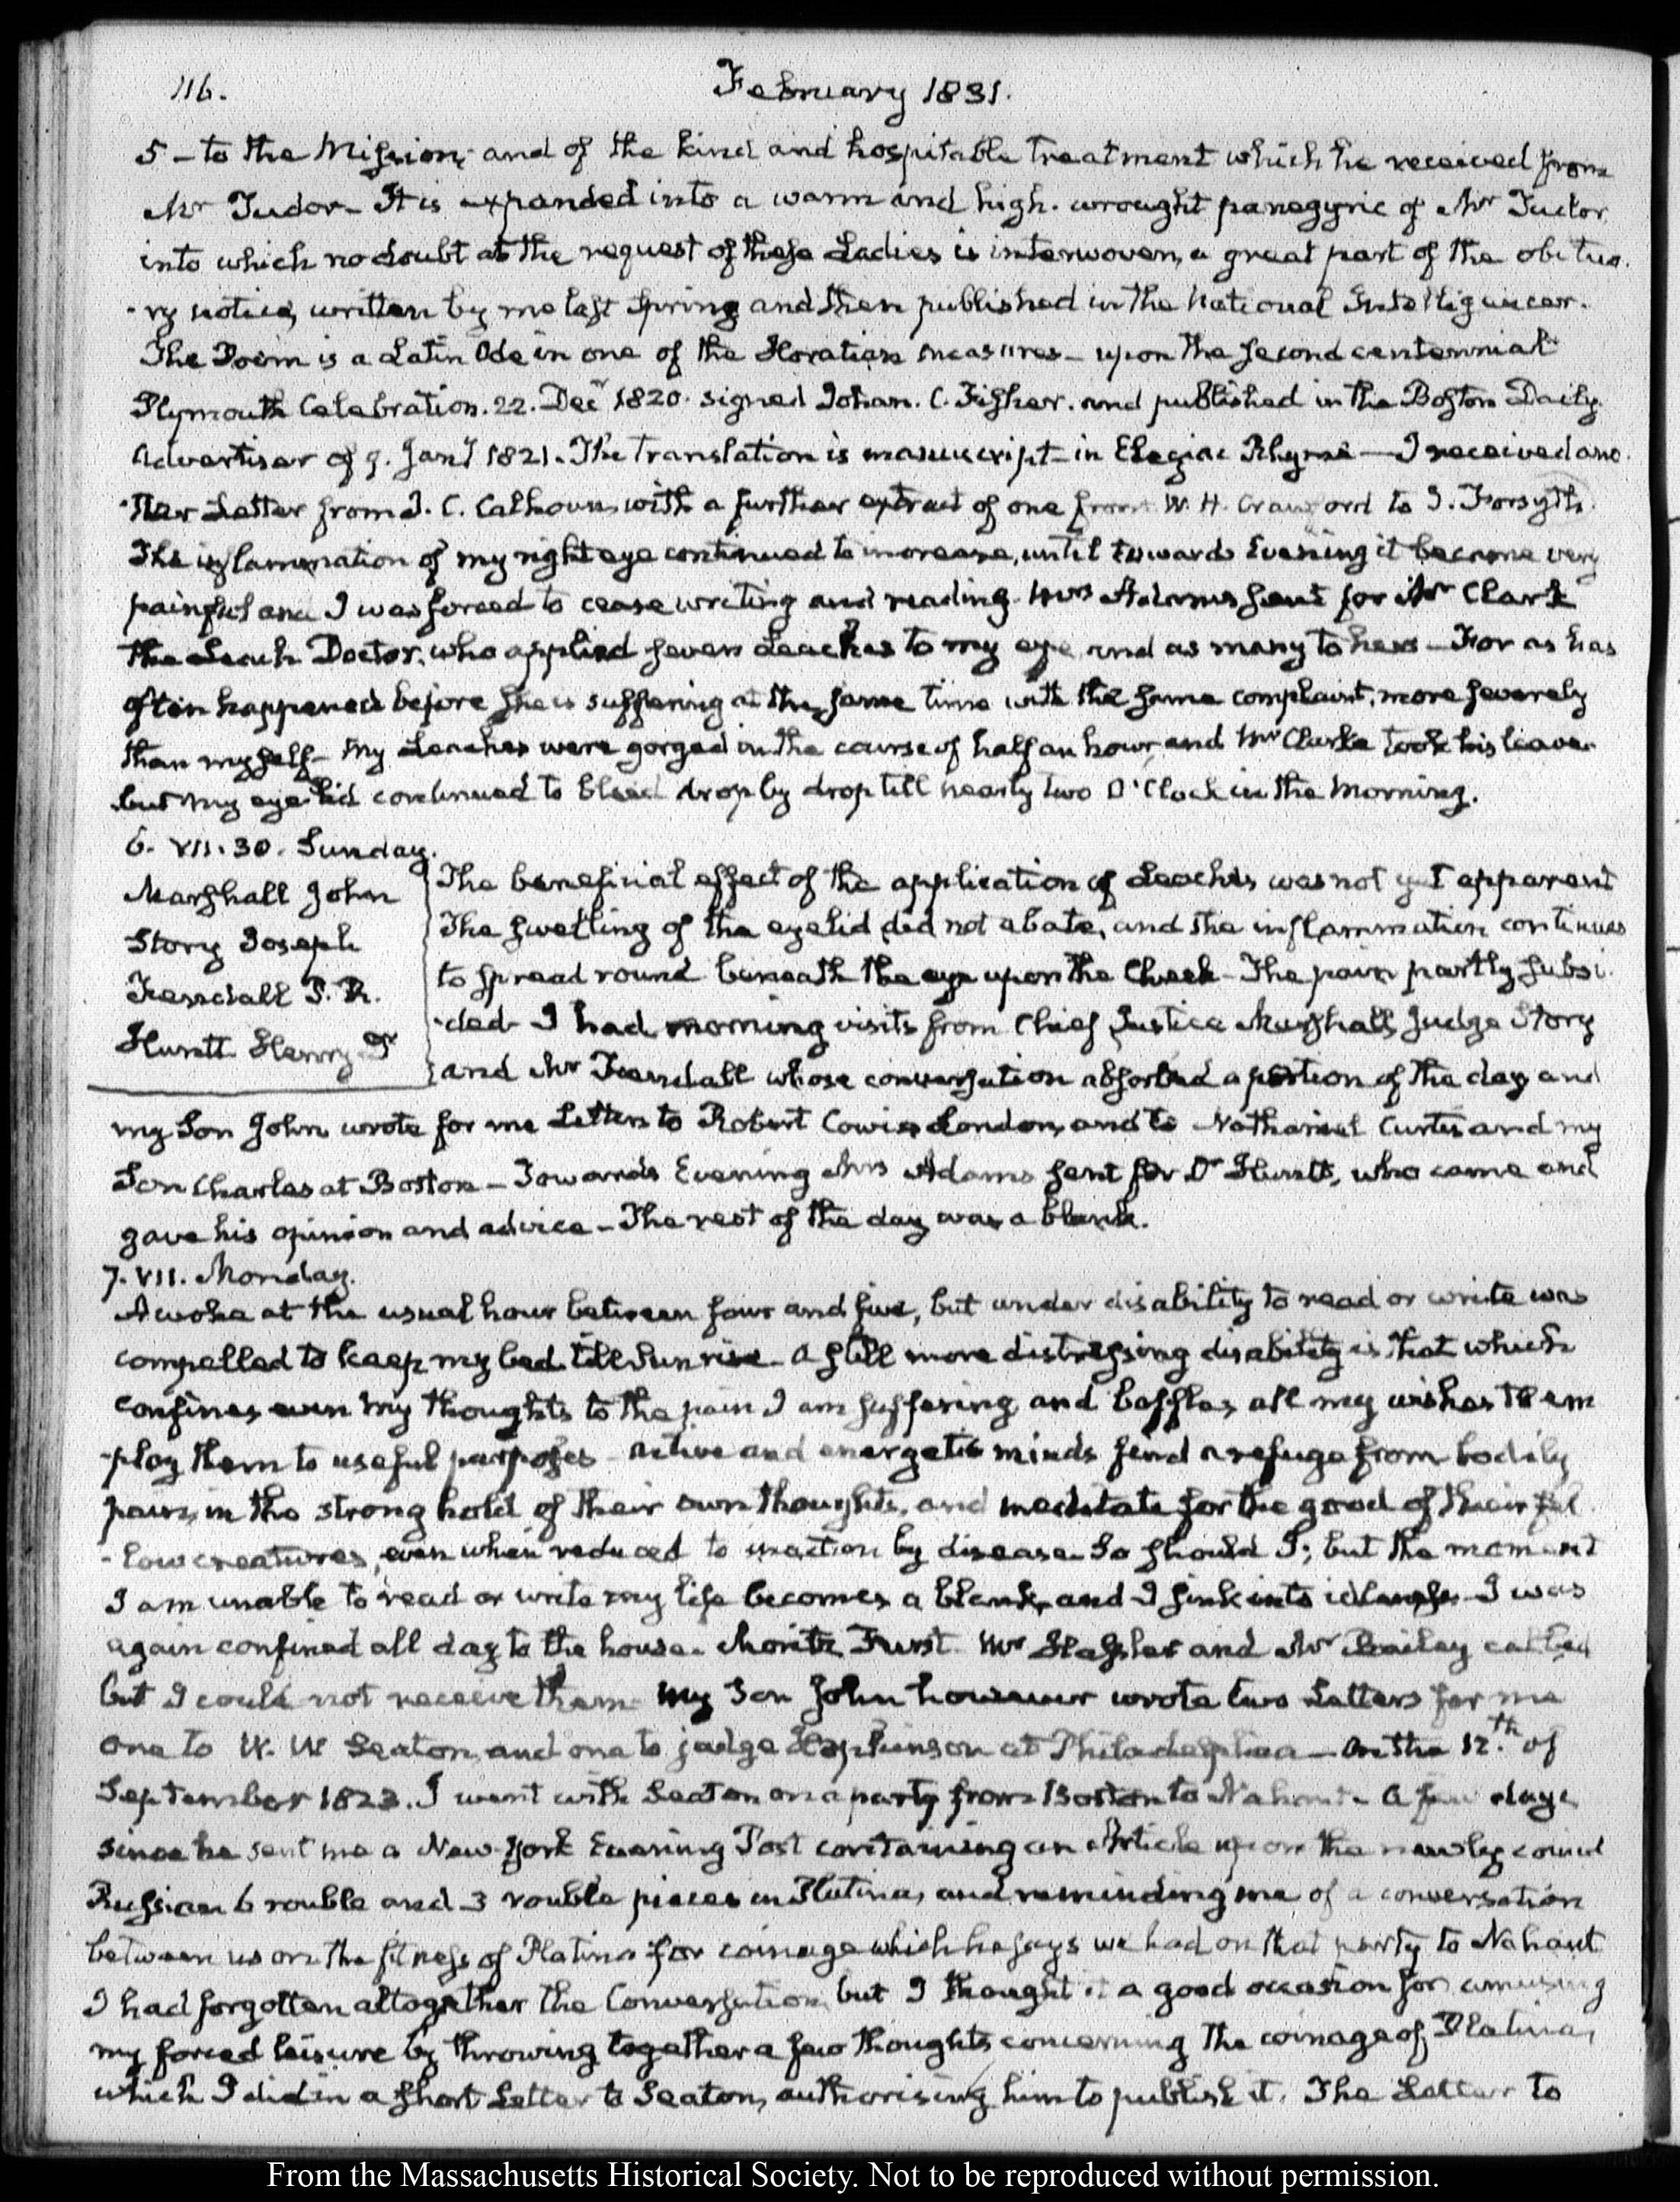 116.
February 1831.
5 - to the Mission; and of the kind and hospitable treatment which he received from
Mr Tudor - It is expanded into a warm and high-wrought panegyric of Mr Tudor,
into which no doubt at the request of these Ladies is interwoven, a great part of the obitua-
-ry notice, written by me last Spring and then published in the National Intelligencer.
The Poem is a Latin Ode in one of the Horatian measures - upon the second centennial
Plymouth Celebration. 22. Decr 1820. signed Johan. C. Fisher. and published in the Boston Daily
Advertiser of 9. Jany 1821. The translation is manuscript - in Elegiac Rhyme - I received ano-
-ther Letter from J. C. Calhoun, with a further extract of one from W. H. Crawford to J. Forsyth.
The inflammation of my right eye continued to increase, until towards Evening it became very
painful and I was forced to cease writing and reading. Mrs Adams sent for Mr Clark
the Leach Doctor, who applied seven Leaches to my eye, and as many to hers - For as has
often happened before she is suffering at the same time with the same complaint, more severely
than myself - My Leaches were gorged in the course of half an hour, and Mr Clarke took his leave
but my eye-lid continued to bleed drop by drop till nearly two O'Clock in the Morning.
6. VII.30. Sunday.
Marshall John
Story Joseph
Fendall P. R.
Huntt Henry Dr
The beneficial effect of the application of Leaches was not yet apparent
The swelling of the eyelid did not abate, and the inflammation continues
to spread round beneath the eye upon the Cheek - The pain partly subsi-
-ded - I had morning visits from Chief Justice Marshall, Judge Story
and Mr Fendall whose conversation absorbed a portion of the day and
my Son John wrote for me Letters to Robert Cowie London, and to Nathaniel Curtis and my
Son Charles at Boston - Towards Evening Mrs Adams sent for Dr Huntt, who came and
gave his opinion and advice - The rest of the day was a blank.
7. VII. Monday.
Awoke at the usual hour between four and five, but under disability to read or write was
compelled to keep my bed till Sunrise - A still more distressing disability is that which
confines even my thoughts to the pain I am suffering and baffles all my wishes to em-
-ploy them to useful purposes - Active and energetic minds find a refuge from bodily
pain, in the strong hold of their own thoughts, and meditate for the good of their fel-
-low creatures, even when reduced to inaction by disease. So should I; but the moment
I am unable to read or write my life becomes a blank, and I sink into idleness. I was
again confined all day to the house. Moritz Furst Mr Slasher and Mr Bailey called
but I could not receive them. My Son John however wrote two Letters for me
one to W. W Seaton, and one to judge Hopkinson at Philadelphia - On the 12.th of
September 1823. I went with Seaton on a party from Boston to Nahant. A few days
since he sent me a New-York Evening Post containing an Article upon the newly coined
Russian 6 rouble and 3 rouble pieces in Platina, and reminding me of a conversation
between us on the fitness of Platina for coinage which he says we had on that party to Nahant
I had forgotten altogether the Conversation, but I thought it a good occasion for amusing
my forced leisure by throwing together a few thoughts concerning the coinage of Platina,
which I did in a short Letter to Seaton, authorising him to publish it. The Letter to
From the Massachusetts Historical Society. Not to be reproduced without permission.